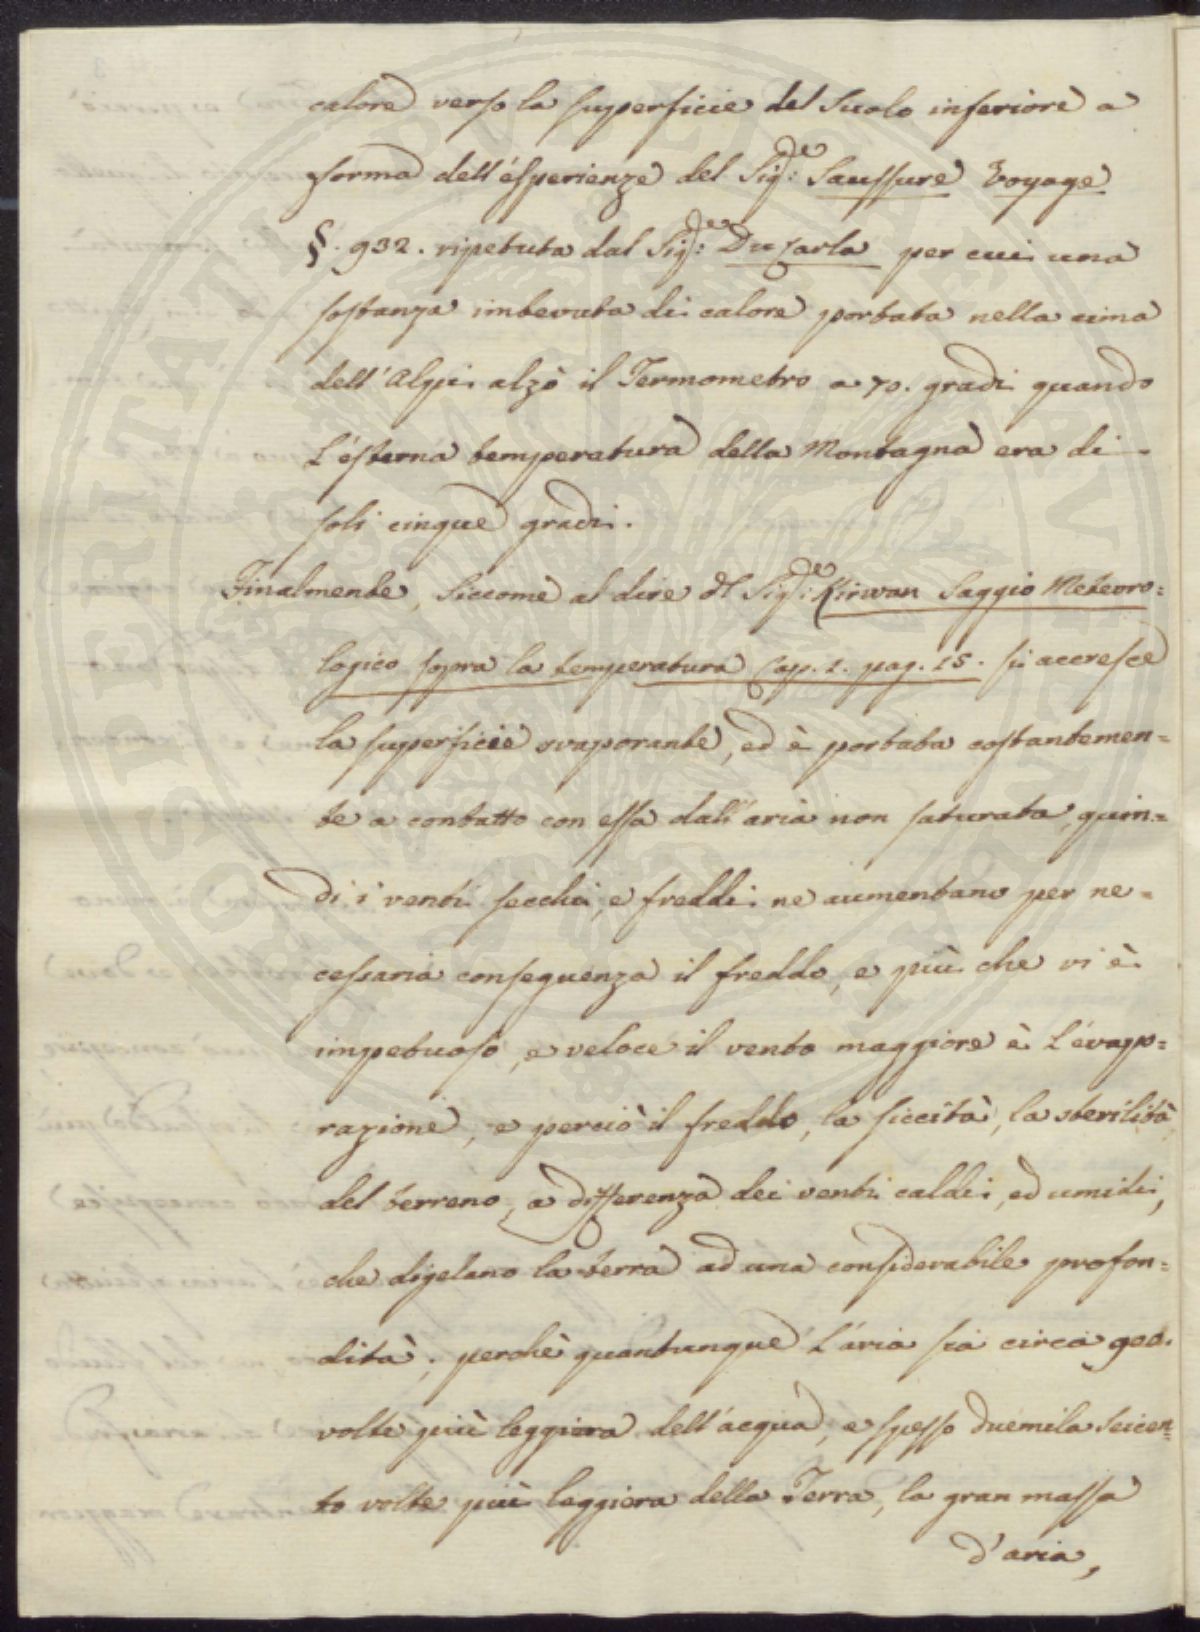 calore verso la superficie del Suolo inferiore a
forma dell'esperienze del Sig:re Saussure Voyage
§. 932. ripetuta dal Sig:re Du Carla per cui una
sostanza imbevuta di calore portata nella cima
dell'Alpi alzò il Termometro a 70. gradi quando
L'esterna temperatura della Montagna era di
soli cinque gradi.
Finalmente, siccome al dire del Sig:re Kirwan Saggio Meteoro=
logico sopra la temperatura Cap. 2. pag. 15. si accresce
la superficie svaporante, ed è portata costantemen=
te a contatto con essa dall'aria non saturata, quin=
di i venti secchi, e freddi ne aumentano per ne=
cessaria conseguenza il freddo, e più che vi è
impetuoso, e veloce il vento maggiore è L'evapo=
razione, e perciò il freddo, la siccità, la sterilità
del terreno, a differenza dei venti caldi, ed umidi,
che digelano la terra ad una considerabile profon=
dità, perchè quantunque L'aria sia circa 900.
volte più leggiera dell'acqua, e spesso duemila seicen=
to volte più leggiera della Terra, la gran massa
d'aria,
PROSPERITATI PUBLICAE AUGENDAE